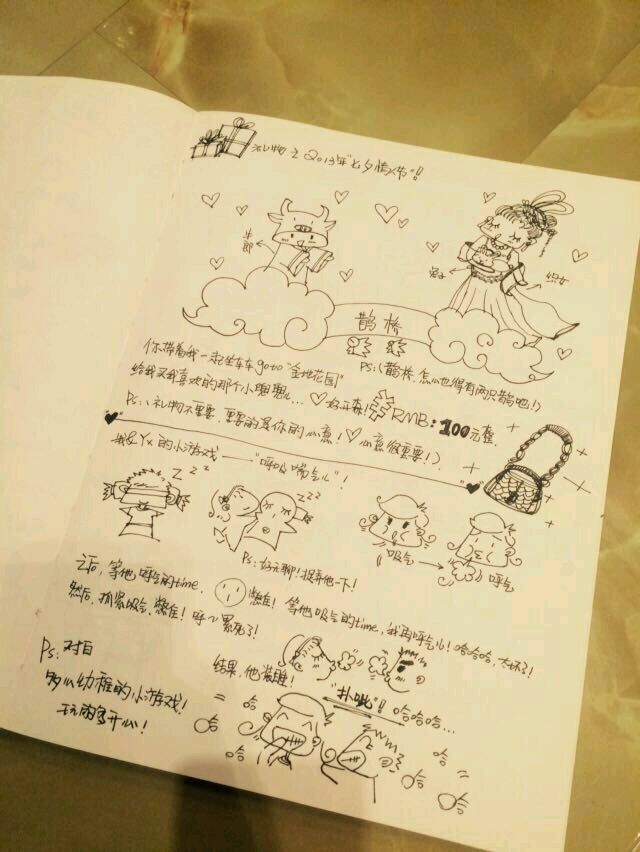 礼物之2013年"七夕情人节"!
牛郎
兔子
织女
鹊桥
PS:(鹊桥,怎么也得有两只鹊吧!)
你带着我一起坐车车go to "金地花园"
给我买我喜欢的那个小
好开森!
RMB:100元整.
PS:(礼物不重要,重要的是你的心意! 心意很重要!).
我&YX的小游戏——"呼吸喘气儿"!
zzz
zzz
PS:好无聊!捉弄他一下!
吸气
呼气
之后,等他呼气的time, 憋住! 等他吸气的time,我再呼气儿!哈哈哈,太坏了!
然后,抓紧吸气、憋住!呼~累死了!
结果,他装睡!
PS:对白
多么幼稚的小游戏!
玩的多开心!
"扑呲"!哈哈哈...
哈
哈
哈
哈
哈
哈